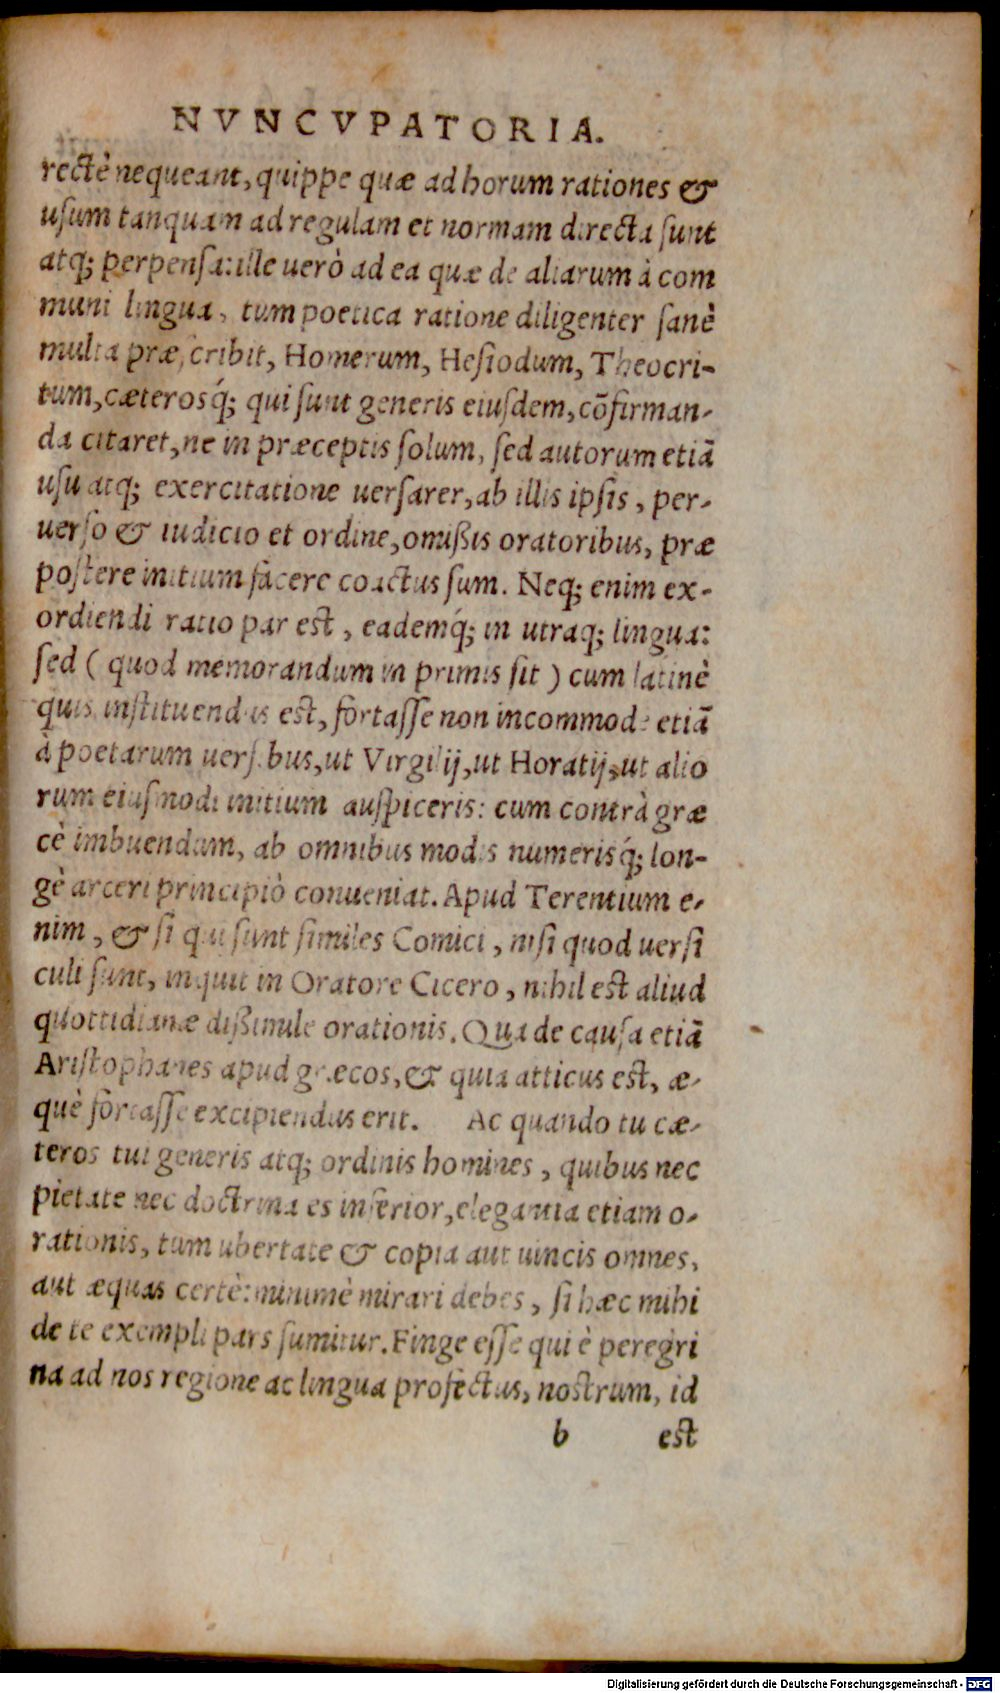 NVNCVPATORIA.
rectè nequeant, quippe quæ ad horum rationes &
usum tanquam ad regulam et normam directa sunt
atq; perpensa: ille uerò ad ea quæ de aliarum à com
muni lingua, tum poetica ratione diligenter sanè
multa præscribit, Homerum, Hesiodum, Theocri-
tum, cæterosq́; qui sunt generis eiusdem, cōfirman-
da citaret, ne in præceptis solum, sed autorum etiã
usu atq; exercitatione uersarer, ab illis ipsis, per-
uerso & iudicio et ordine, omißis oratoribus, præ
postere initium facere coactus sum. Neq; enim ex-
ordiendi ratio par est, eademq́; in utraq; lingua:
sed ( quod memorandum in primis sit ) cum latinè
quis instituendus est, fortasse non incommode etiã
à poetarum uersibus, ut Virgilij, ut Horatij, ut alio
rum eiusmodi initium auspiceris: cum contrà græ
cè imbuendum, ab omnibus modis numerisq́; lon-
gè arceri principiò conueniat. Apud Terentium e-
nim, & si qui sunt similes Comici, nisi quod uersi
culi sunt, inquit in Oratore Cicero, nihil est aliud
quottidianæ dißimile orationis. Qua de causa etiã
Aristophanes apud græcos, & quia atticus est, æ-
què fortasse excipiendus erit. Ac quando tu cæ-
teros tui generis atq; ordinis homines, quibus nec
pietate nec doctrina es inferior, elegantia etiam o-
rationis, tum ubertate & copia aut uincis omnes,
aut æquas certè: minimè mirari debes, si hæc mihi
de te exempli pars sumitur. Finge esse qui è peregri
na ad nos regione ac lingua profectus, nostrum, id
b est
Digitalisierung gefördert durch die Deutsche Forschungsgemeinschaft - DFG